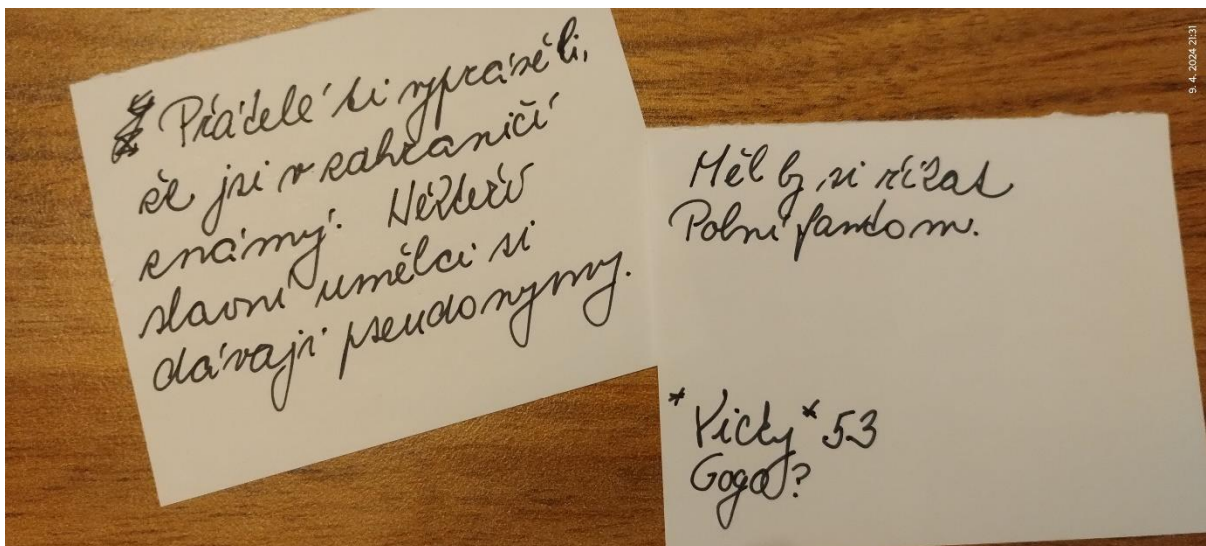 Přátelé ti vyprávěli,
že jsi v zahraničí
známý. Někteří
slavní umělci si
dávají pseudonymy.
Měl by si říkat
Polní fantom.
*Vicky* 53
Gogo?
9. 4. 2024 21:31